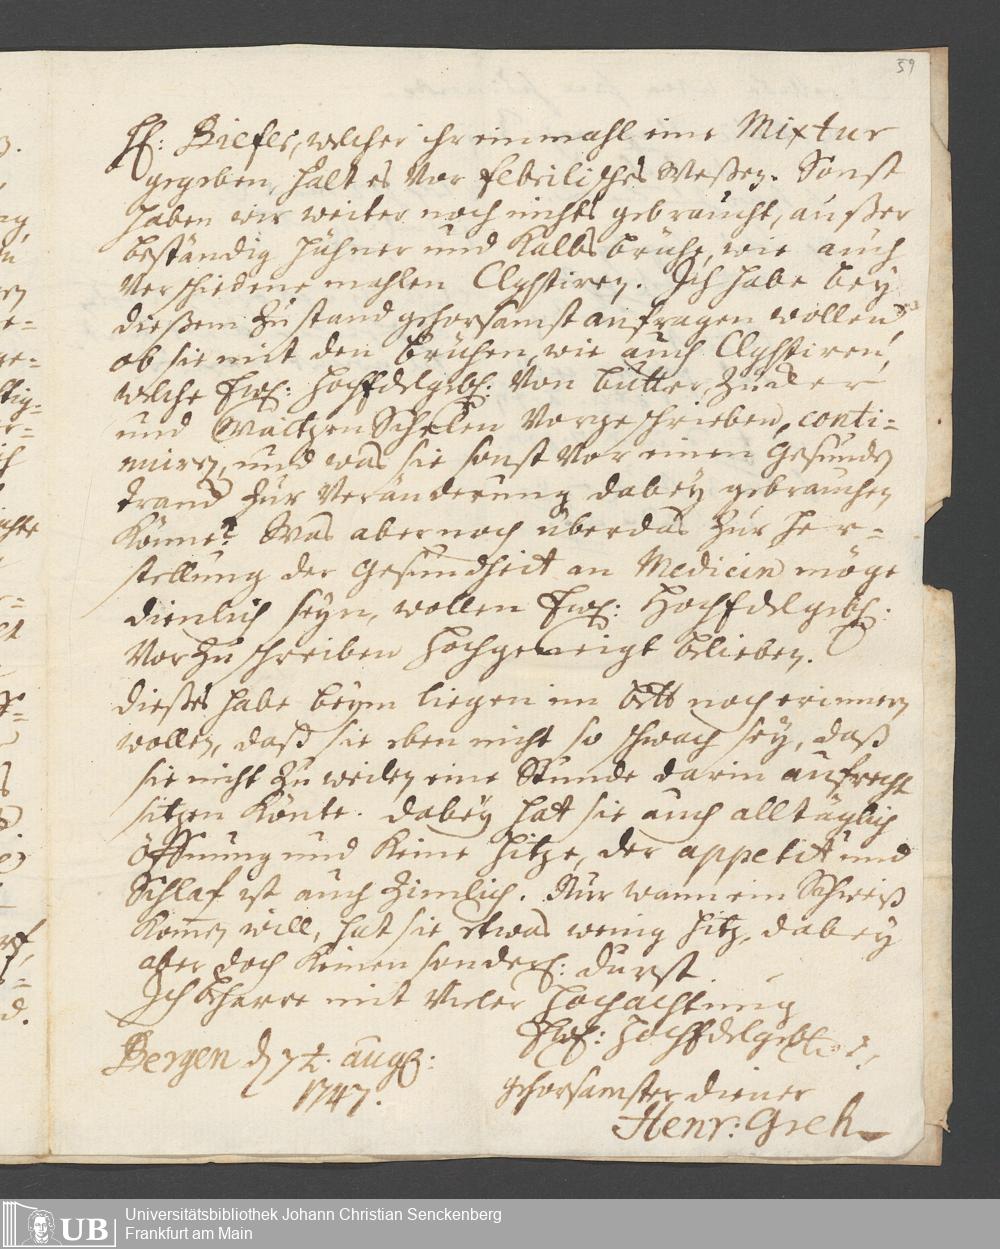 59
H: Biefer, welcher ihr einmahl eine Mixtur
gegeben, halt es vor febrilisches Weßen. Sonst
haben wir weiter noch nichts gebraucht, außer
beständig Hühner und Kalbsbrühe, wie auch
verschiedene mahlen Clystiren. Ich habe bey
dießem Zustand gehorsamst anfragen wollen
ob sie mit den Brühen, wie auch Clystiren,
welche Ew: HochEdelgeb: von butter, Zucker
und Waitzen Schelen vorgeschrieben, conti-
nuiren, und was sie sonst vor einen gesunden
tranck zur Veränderung dabey gebrauchen
könne? Was aber noch überdas zur Her-
stellung der Gesundheit an Medicin möge
dienlich seyn, wollen Ew: HochEdelgeb:
vorzuschreiben hochgeneigt belieben.
Dießes habe beym liegen im bett noch erinnern
wollen, daß sie eben nicht so schwach sey, daß
sie nicht zuweilen eine Stunde darin aufrecht
sitzen könte. Dabey hat sie auch alltäglich
öffnung und keine Hitze, der appetit und
Schlaf ist auch zimlich. Nur wann ein Schweiß
komen will, hat sie etwas wenig Hitz, dabey
aber doch keinen sonderl: Durst.
Ich beharre mit vieler Hochachtung
Ew: HochEdelgeb
Bergen d 7t. aug:
1747.
gehorsamster diener
Henr: Greh
UB Universitätsbibliothek Johann Christian Senckenberg
Frankfurt am Main